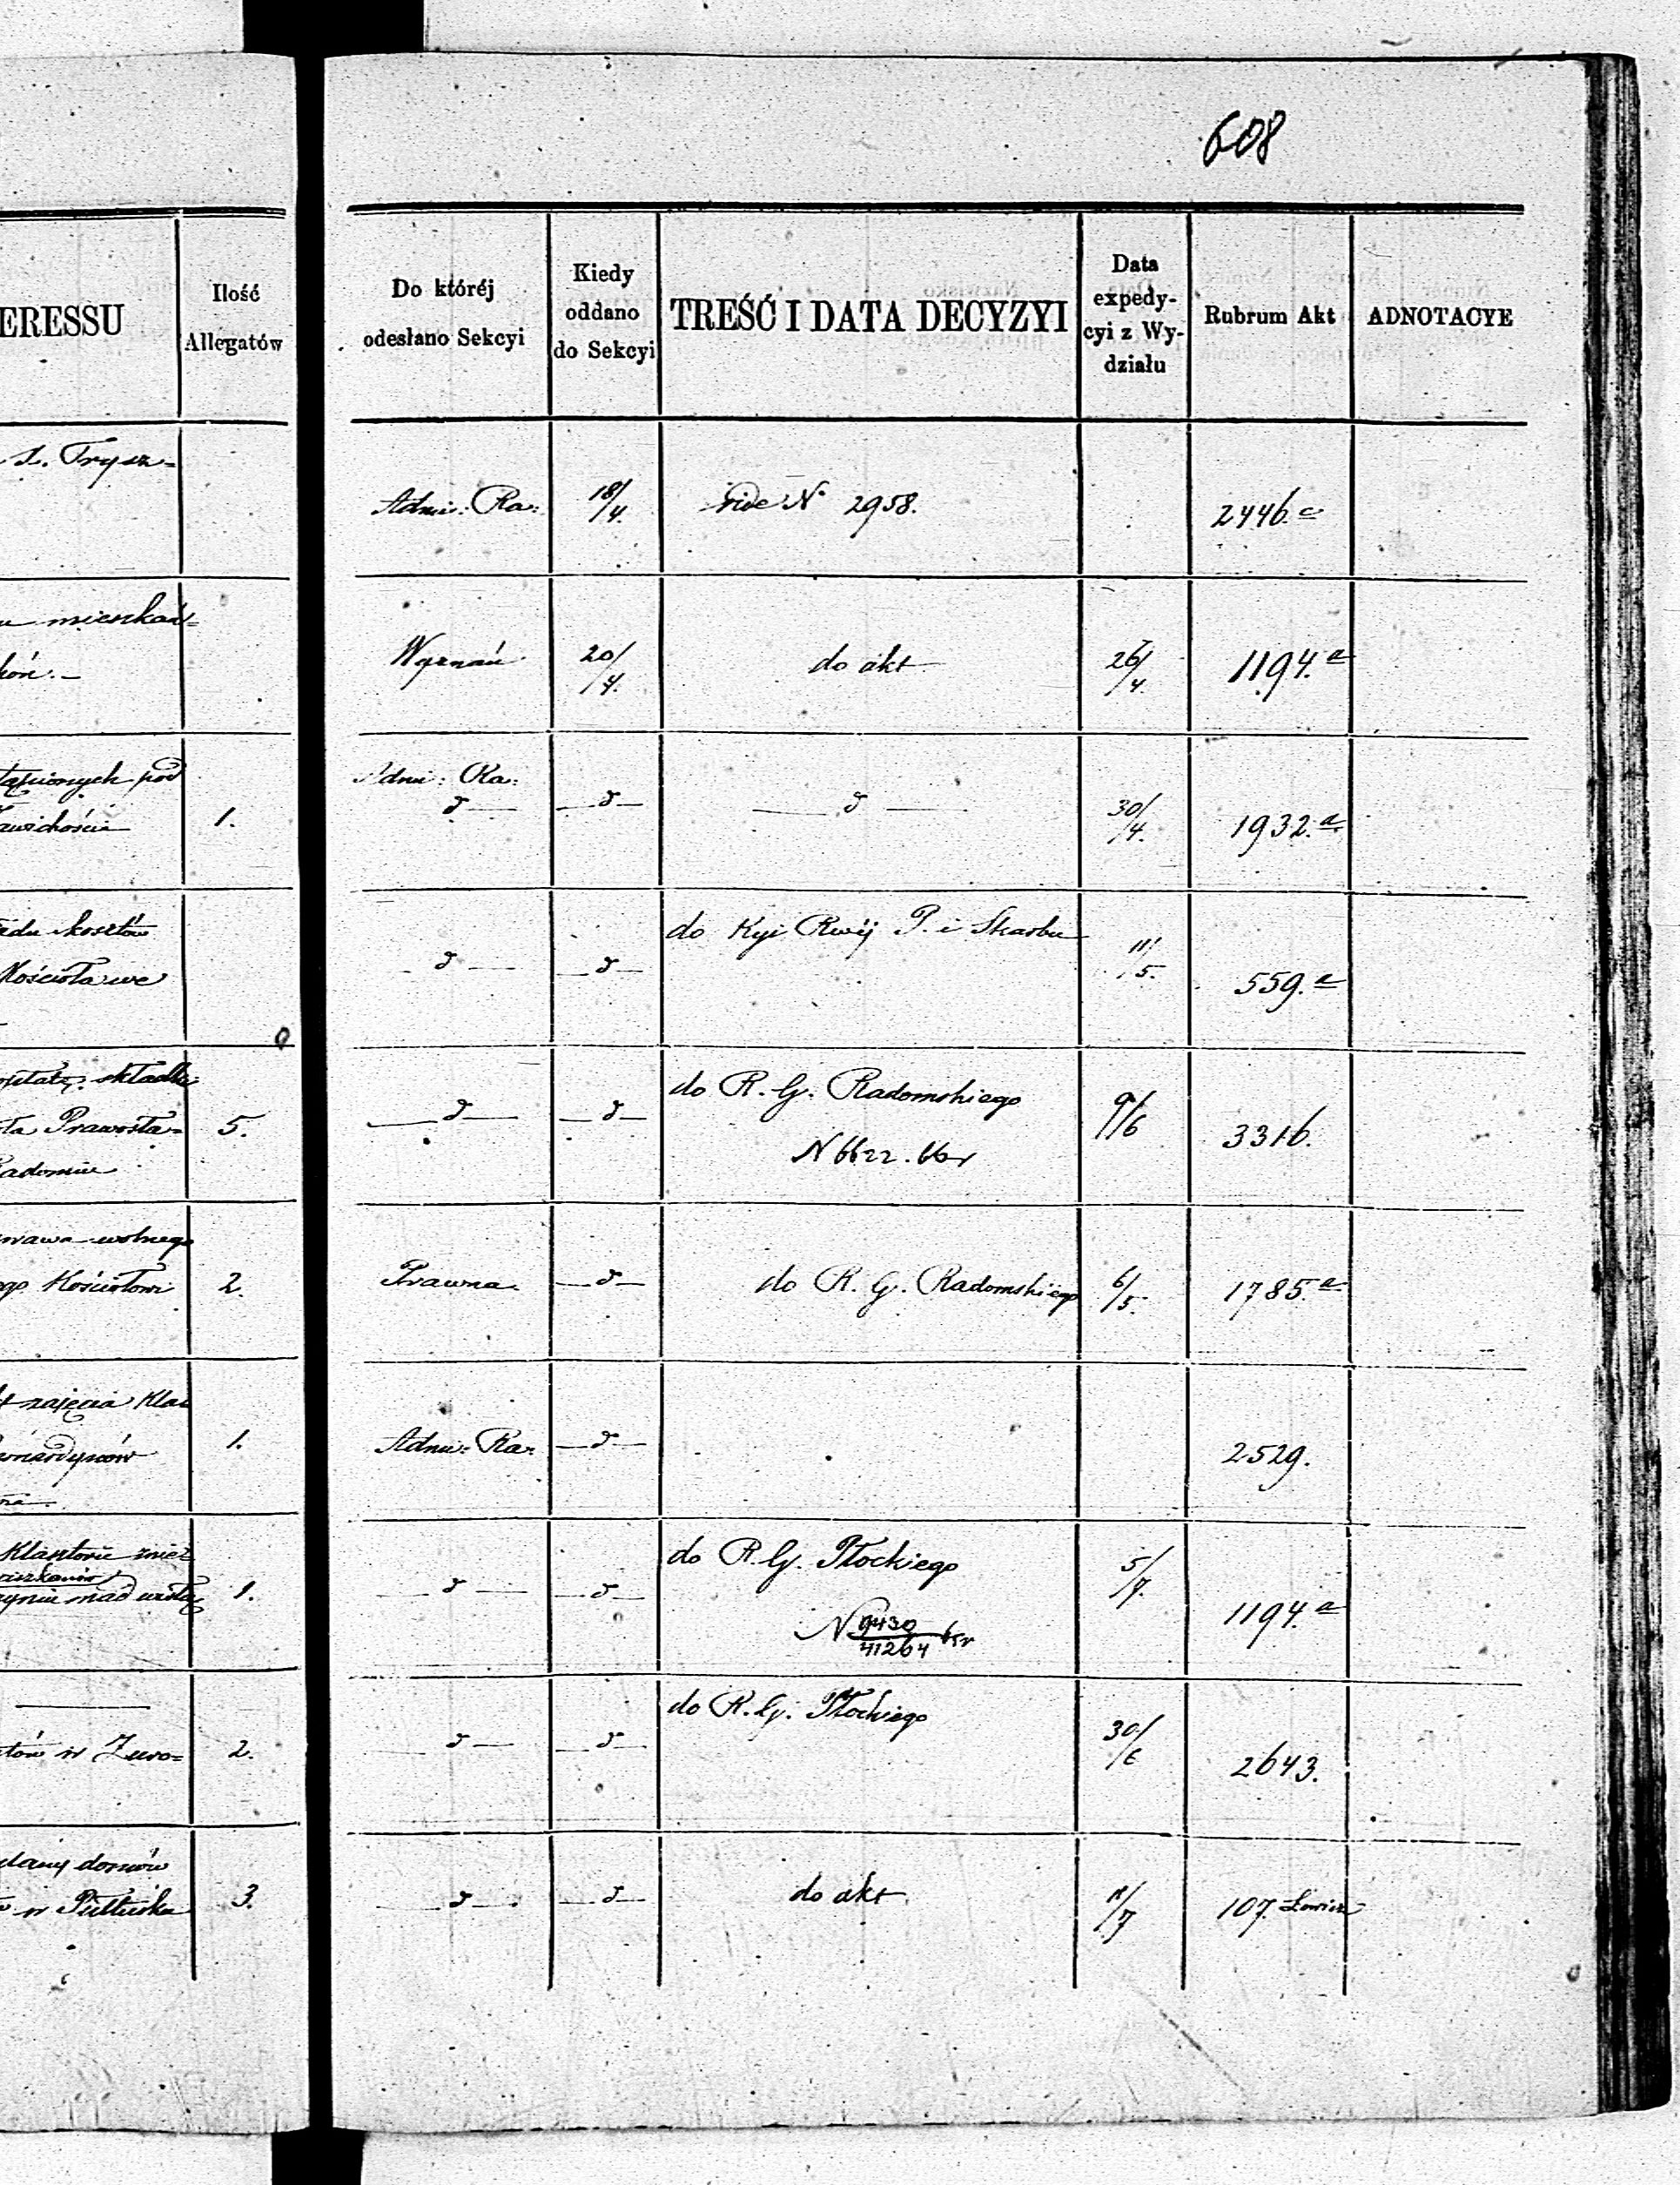 608
ERESSU
Ilość
Allegatów
Do któréj
odesłano Sekcyi
Kiedy
oddano
do Sekcyi
TREŚĆ I DATA DECYZYI
Data
expedy-
cyi z Wy-
działu
Rubrum Akt
ADNOTACYE
Trysz=
Admi: Ra: 18/4. vide No 2958. 2446.a
mieszkań=
Wyznań 20/4. do akt 26/4. 1194.a
pod
1.
Admi: Ra:
d d d 30/4. 1932.a
kosztów
Kościoła we
d d do Kyi Rwéj P. i Skarbu 11/5. 559.a
składki
Prawosła= 5.
adomiu
d d do R. G. Radomskiego 9/6 3316.
N 6622.
wolnego
Kościołowi 2.
Prawna d do R. G. Radomskiego 6/5. 1785.a
zajęcia Klas
1.
Admi: Ra: d 2529.
Klasztorie
nad Wisłą 1.
d d do R. G. Płockiego 5/7. 1194.a
N 9430/41264
w Zuro= 2.
d d do R. G. Płockiego 30/6 2643.
domów
w Pułtusku 3.
d d do akt 11/7 107. Łowicz